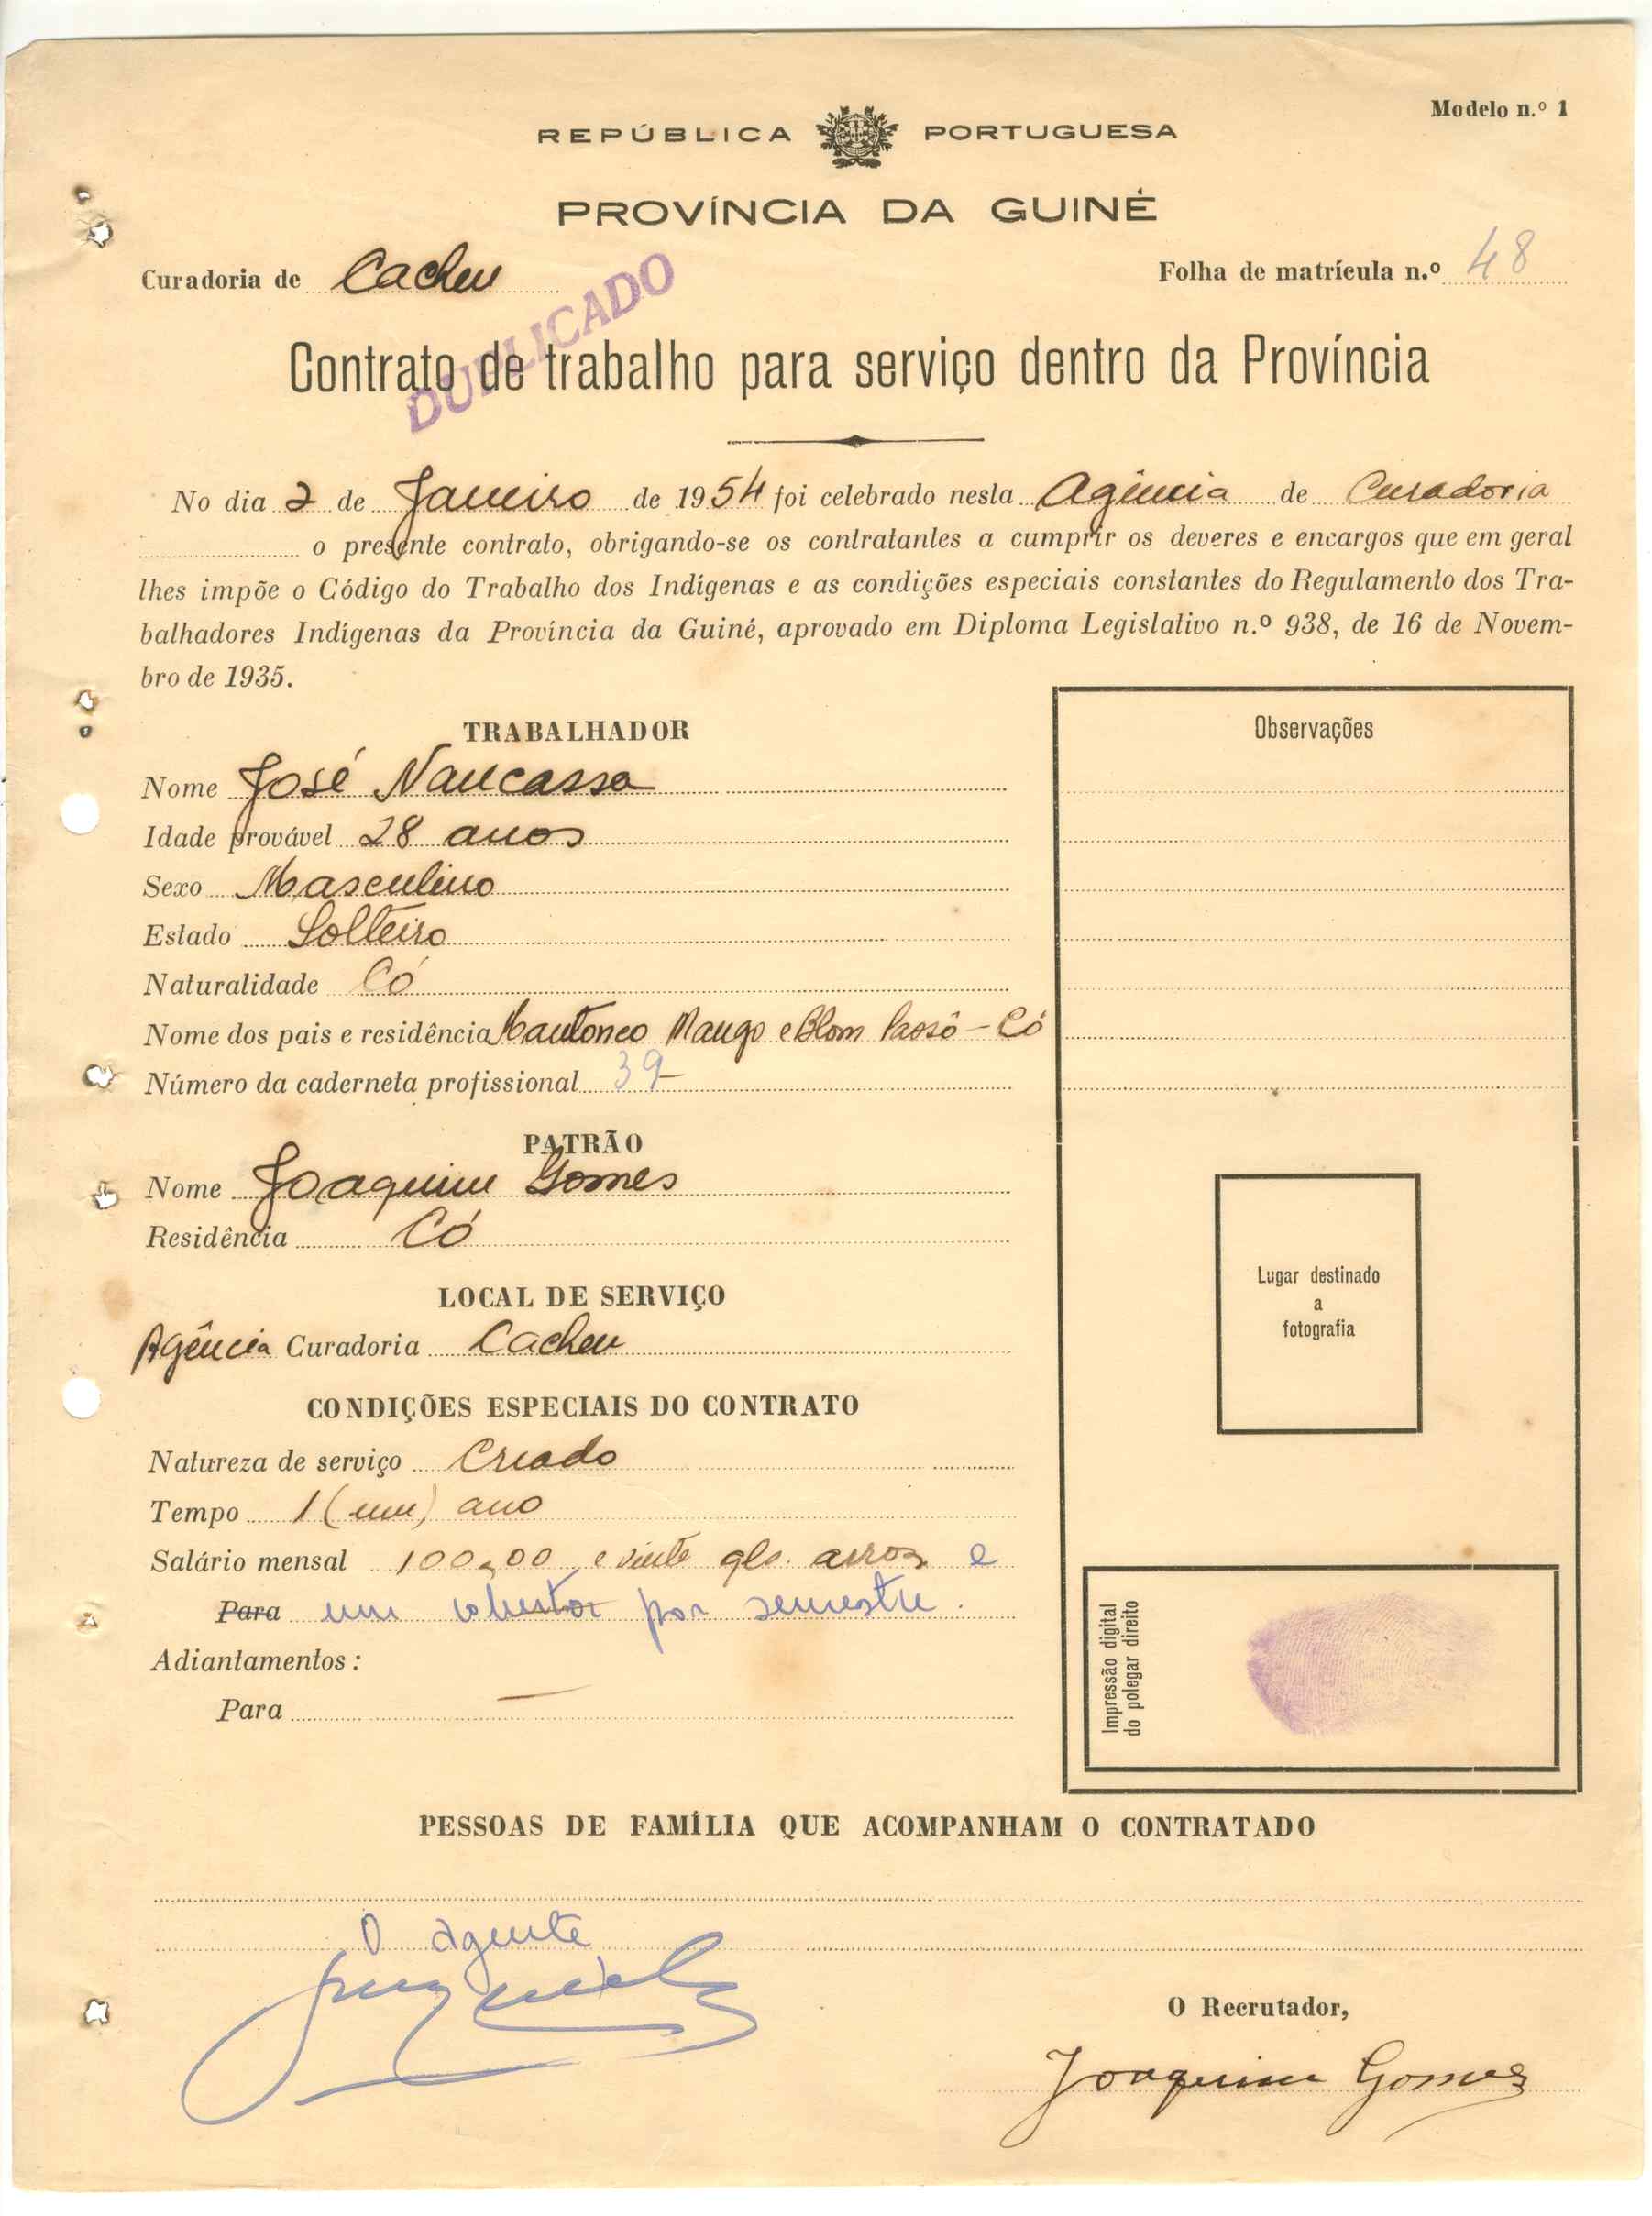 Modelo n.º 1
REPÚBLICA PORTUGUESA
PROVÍNCIA DA GUINÉ
Curadoria de Cacheu
Folha de matrícula n.º 48
DUPLICADO
Contrato de trabalho para serviço dentro da Província
No dia 2 de Janeiro de 1954 foi celebrado nesta Agência de Curadoria
o presente contrato, obrigando-se os contratantes a cumprir os deveres e encargos que em geral
lhes impõe o Código do Trabalho dos Indígenas e as condições especiais constantes do Regulamento dos Tra-
balhadores Indígenas da Província da Guiné, aprovado em Diploma Legislativo n.º 938, de 16 de Novem-
bro de 1935.
TRABALHADOR
Nome José Naucassa
Idade provável 28 anos
Sexo Masculino
Estado Solteiro
Naturalidade Có
Nome dos pais e residência Mango e Blom - Có
Número da caderneta profissional 39
PATRÃO
Nome Joaquim Gomes
Residência Có
LOCAL DE SERVIÇO
Agência Curadoria Cacheu
CONDIÇÕES ESPECIAIS DO CONTRATO
Natureza de serviço Criado
Tempo 1 (um) ano
Salário mensal 100,00 e vinte arroz e
Para um por semestre.
Adiantamentos:
Para —
Observações
Lugar destinado
a
fotografia
Impressão digital
do polegar direito
PESSOAS DE FAMÍLIA QUE ACOMPANHAM O CONTRATADO
O agente
O Recrutador,
Joaquim Gomes